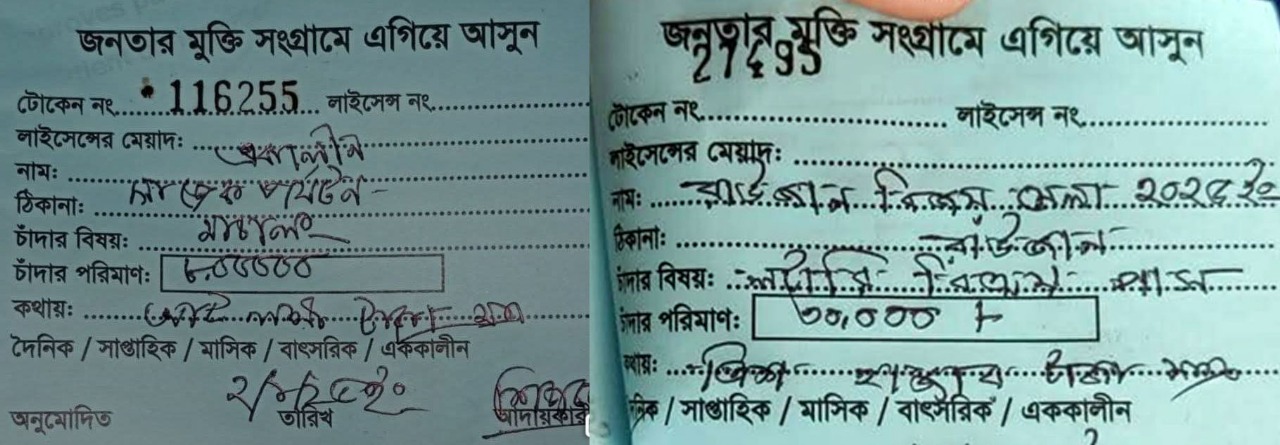 জনতার মুক্তি সংগ্রামে এগিয়ে আসুন
টোকেন নং 116255 লাইসেন্স নং
লাইসেন্সের মেয়াদ: এককালীন
নাম:
ঠিকানা:
চাঁদার বিষয়:
চাঁদার পরিমাণ: ৮,০০০০০
কথায়: আট লক্ষ টাকা মাত্র
দৈনিক / সাপ্তাহিক / মাসিক / বাৎসরিক / এককালীন
অনুমোদিত তারিখ আদায়কারী
জনতার মুক্তি সংগ্রামে এগিয়ে আসুন
27495
টোকেন নং লাইসেন্স নং
লাইসেন্সের মেয়াদ:
নাম: রাউজান বিজয় মেলা ২০২৫ইং
ঠিকানা: রাউজান
চাঁদার বিষয়: লটারি
চাঁদার পরিমাণ: ৩০,০০০
কথায়: ত্রিশ হাজার টাকা মাত্র
দৈনিক / সাপ্তাহিক / মাসিক / বাৎসরিক / এককালীন